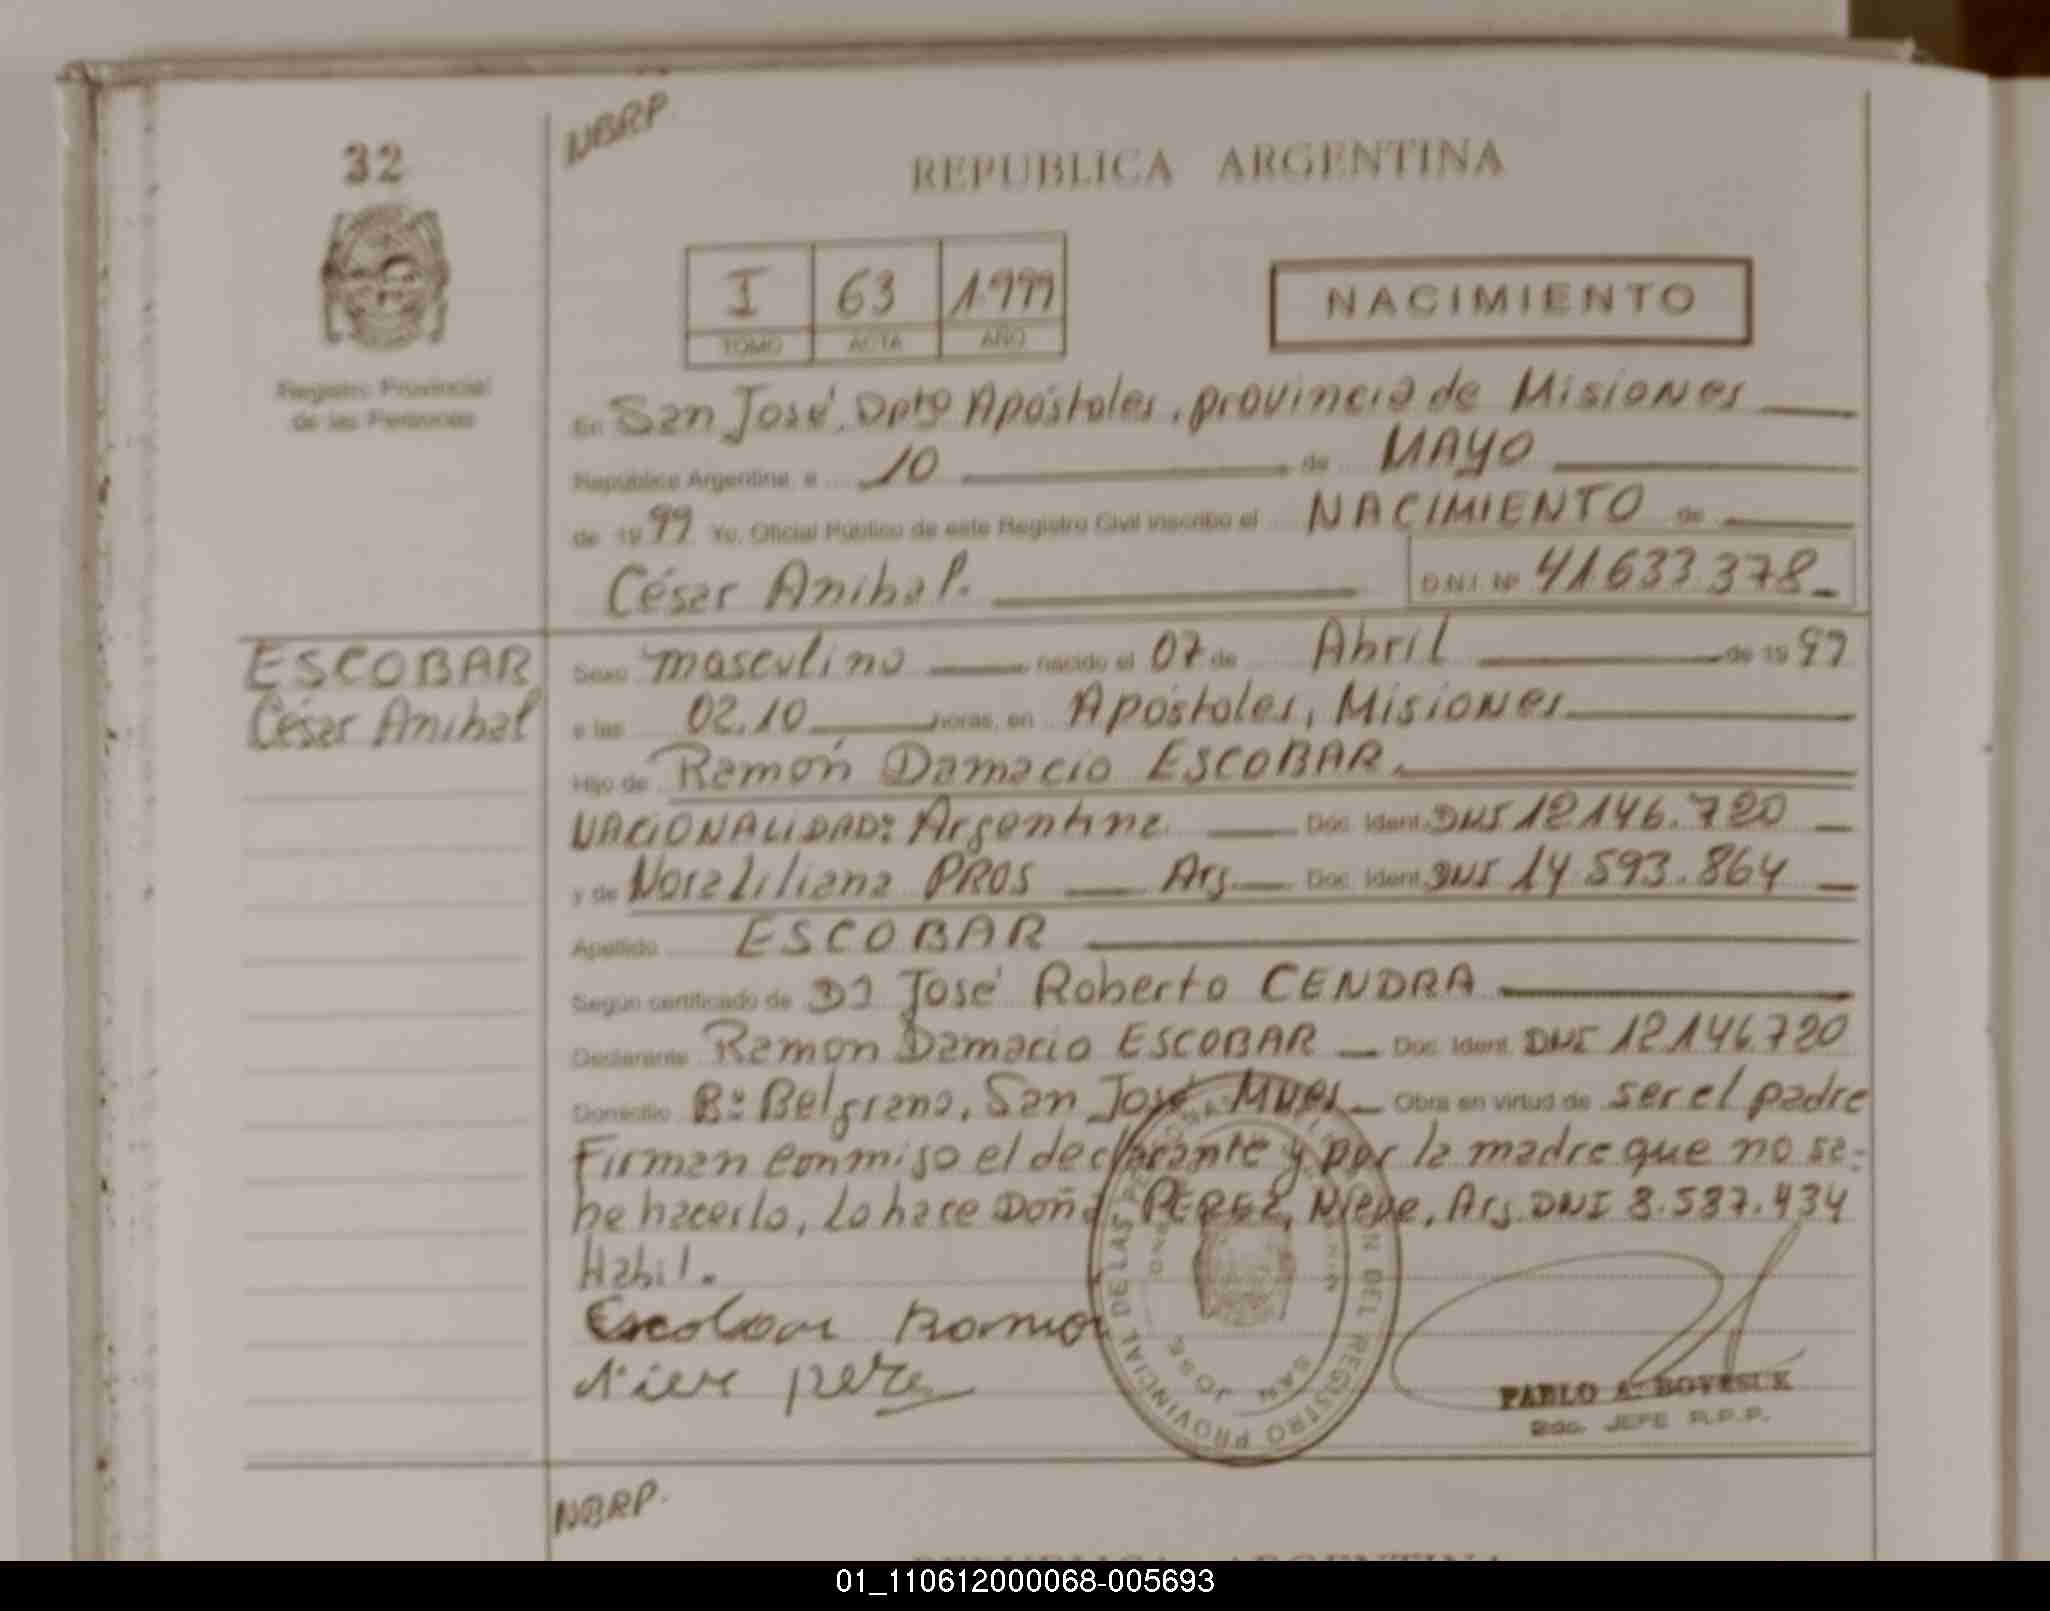 NBRP
32
REPUBLICA ARGENTINA
I 63 1999
TOMO ACTA AÑO
NACIMIENTO
Registro Provincial
de las Personas
En San José, Dpto Apóstoles, provincia de Misiones
República Argentina, a 10 de MAYO
de 1999 Yo, Oficial Público de este Registro Civil inscribo el NACIMIENTO de
César Anibal. D.N.I. Nº 41.633.378
ESCOBAR
César Anibal
Sexo masculino nacido el 07 de Abril de 1999
a las 02.10 horas, en Apóstoles, Misiones
Hijo de Ramón Damacio ESCOBAR.
NACIONALIDAD: Argentina Doc. Ident. DNI 12.146.720
y de Nora Liliana PROS Arg. Doc. Ident. DNI 14.593.864
Apellido ESCOBAR
Según certificado de José Roberto CENDRA
Declarante Ramon Damacio ESCOBAR Doc. Ident. DNI 12.146.720
Domicilio Bº Belgrano, San José Mnes Obra en virtud de ser el padre
Firman conmigo el declarante y por la madre que no sa-
be hacerlo, lo hace Doña PEREZ, Nieve, Arg. DNI 8.587.434
Habil.
Escobar Ramo
Nieve pere
REGISTRO PROVINCIAL DE LAS PERSONAS
SAN JOSE
PABLO A. BOYESUK
JEFE R.P.P.
NBRP.
REPUBLICA ARGENTINA
01_110612000068-005693